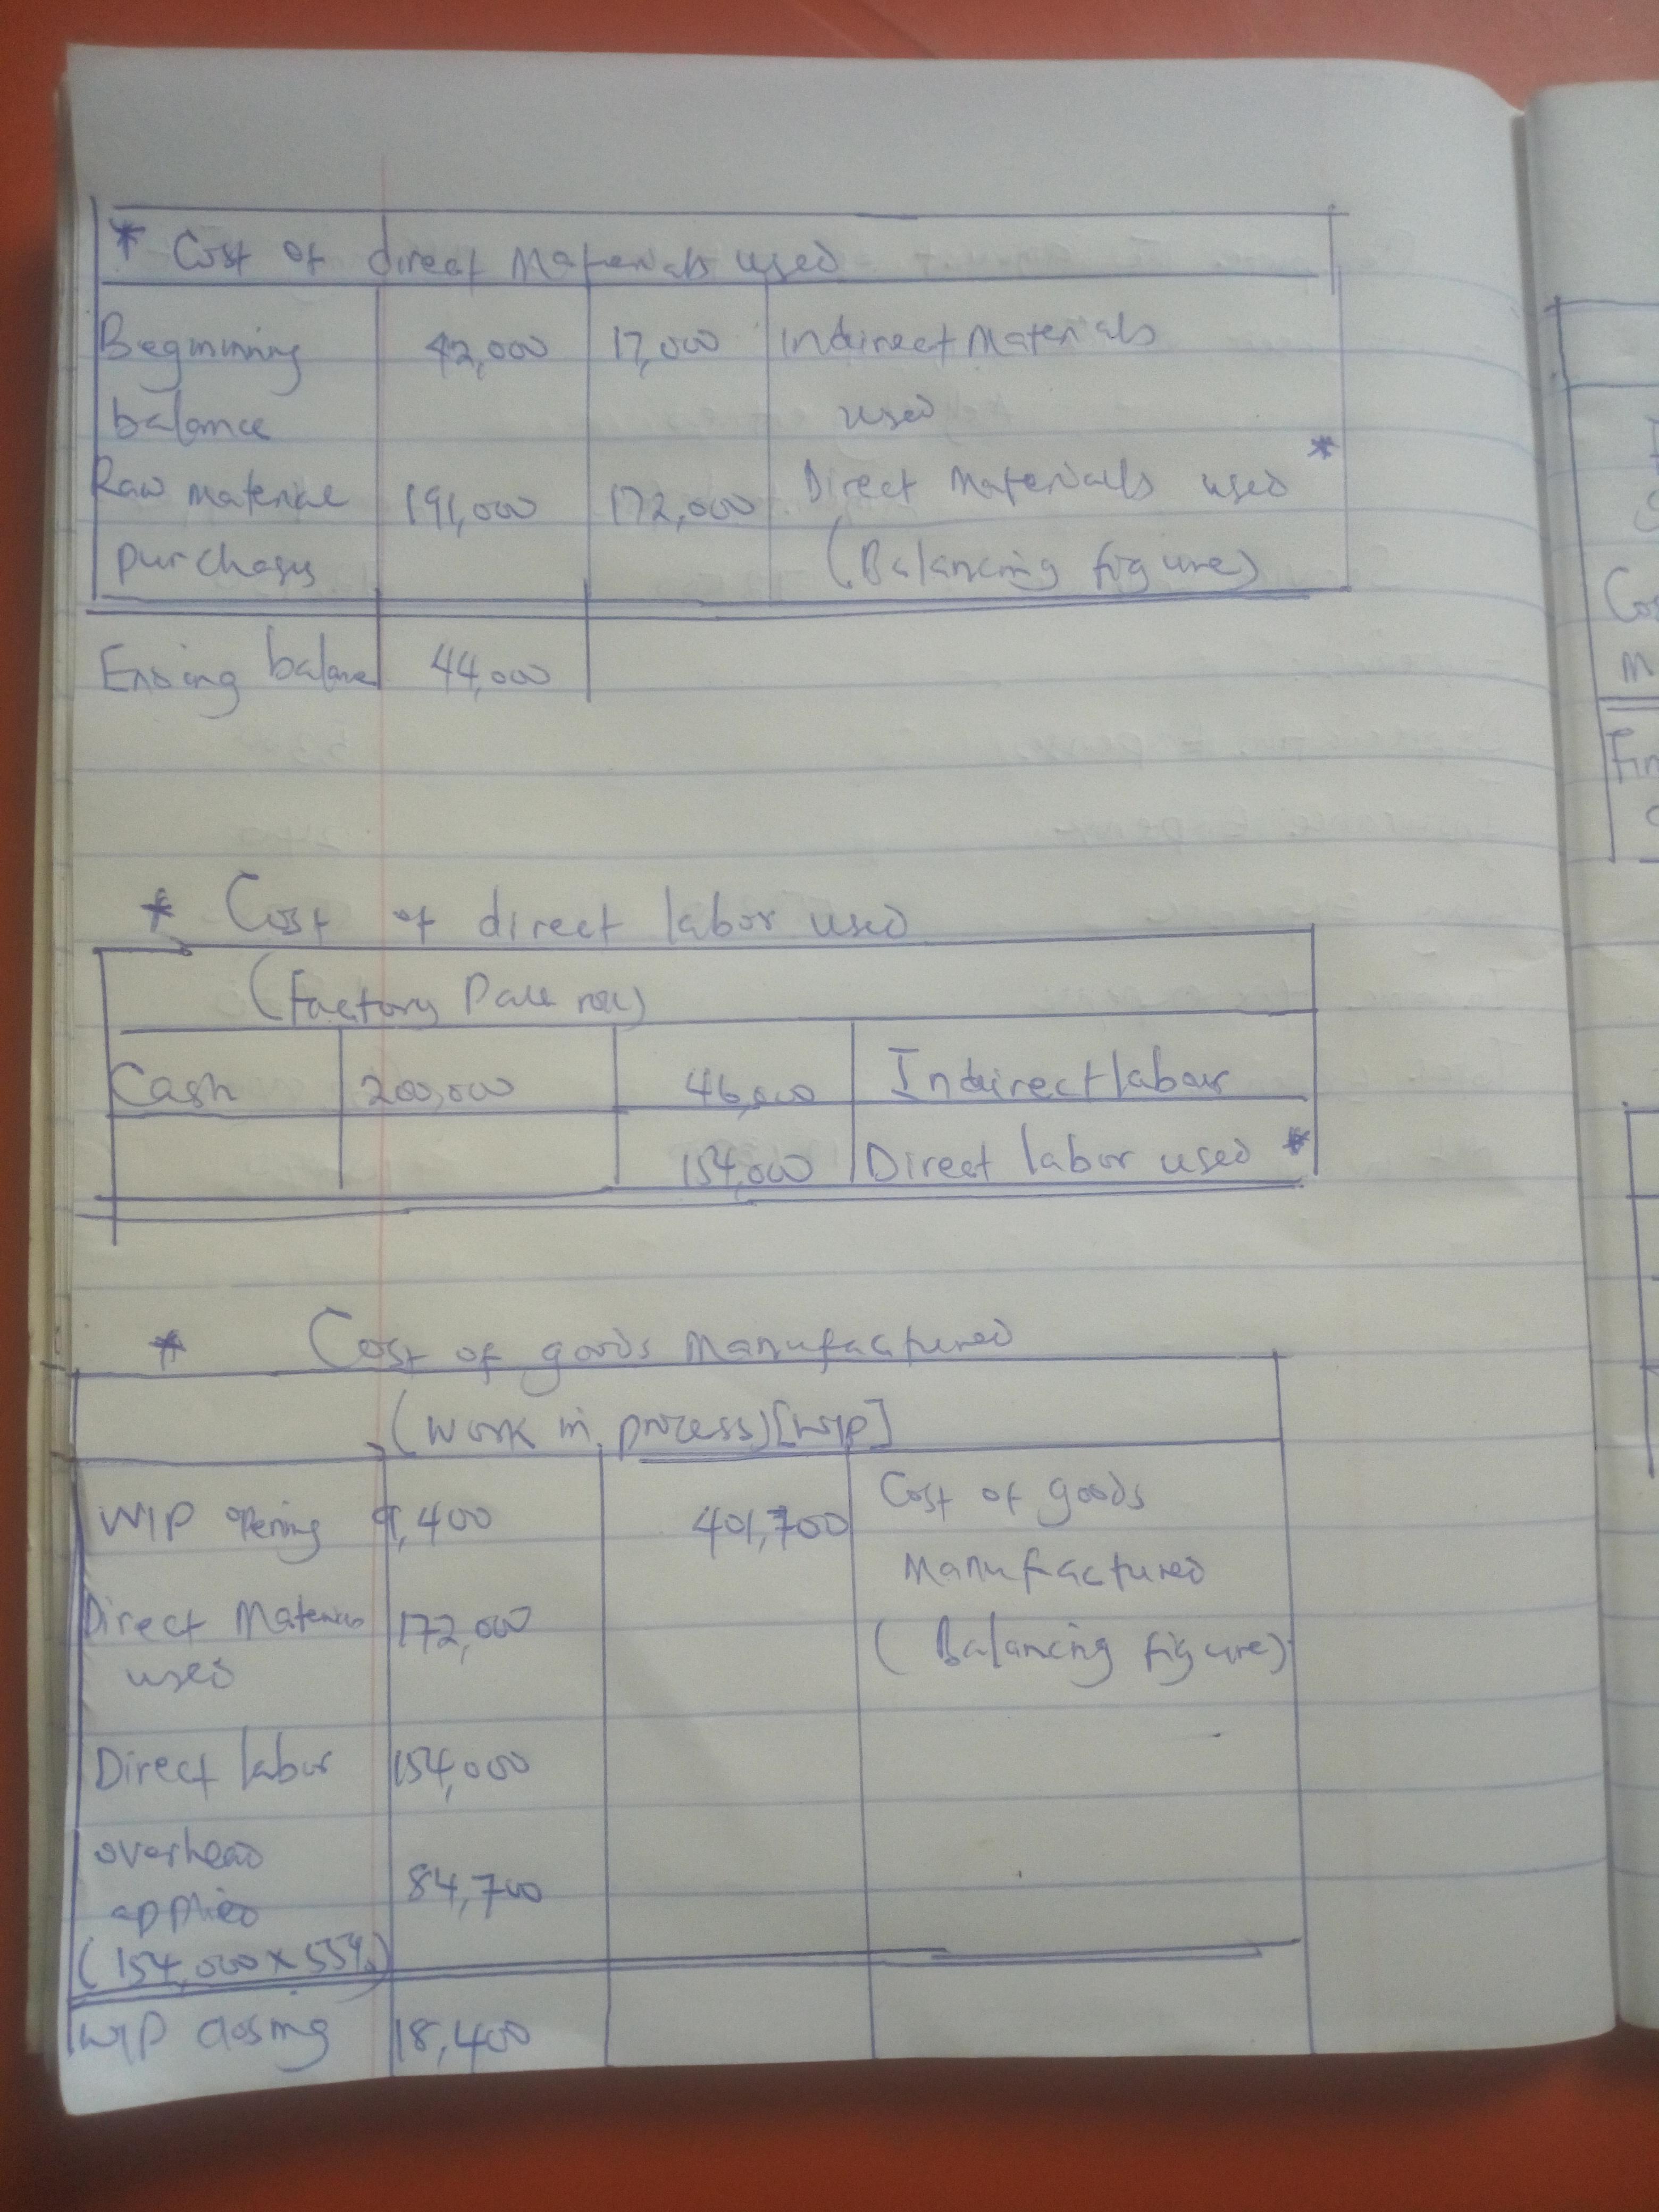 * Cost of direct Materials used
Beginning 42,000 17,000 Indirect Materials
balance used
Raw material 191,000 172,000 Direct Materials used *
purchases (Balancing figure)
Ending balance 44,000
* Cost of direct labor used
(Factory
Cash 200,000 46,000 Indirect labour
154,000 Direct labor used *
* Cost of goods Manufactured
(Work in process) [WIP]
WIP opening 9,400 401,700 Cost of goods
Manufactured
Direct Materials 172,000 (Balancing figure)
used
Direct labor 154,000
overhead
applied 84,700
(154,000 x 55%)
WIP closing 18,400
Co
M
Fin